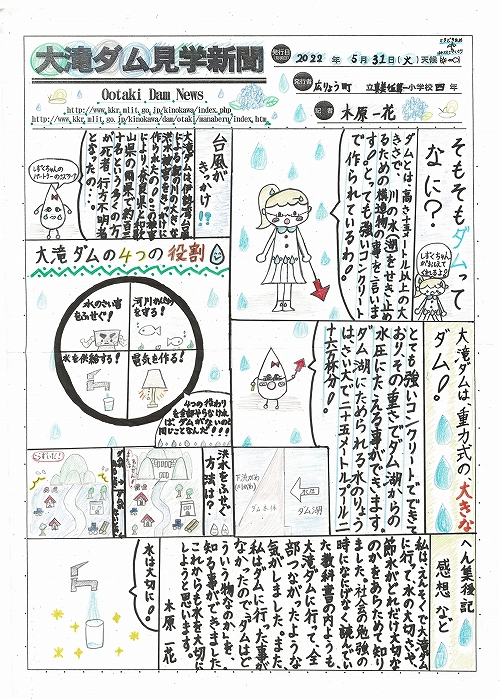 大滝ダム見学新聞
Ootaki Dam News
http://www.kkr.mlit.go.jp/kinokawa/index.php
http://www.kkr.mlit.go.jp/kinokawa/dam/otaki/manaberu/index.htm
発行日
2022 年 5 月 31 日 (火) 天候
発行者
広りょう町 立真美ケ丘第一小学校 四 年
記者
木原 一花
そもそもダムって
なに?
しずくちゃんが
おしえて
くれるよ!
ダムとは、高さ十五メートル以上の大
きさで、川の水や湖をせき止め
るための構造物の事を言いま
す!とっても強いコンクリート
で作られているわ!!
台風が
きっかけ!!
大滝ダムは、伊勢湾台風
による紀の川の大きな
洪水被害をきっかけに
作られたの。この被害
により、奈良県と和歌
山県の両県で約三
十名という多くの方
が死者、行方不明者
となったの…。
しずくちゃんの
パートナーの
大滝ダムの4つの役割
水のさい害
をふせぐ!
河川かんきょう
を守る!
水を供給する!
電気を作る!
4つの役わり
を全部そろわなけれ
ば、ダムがないのと
同じことなんだ!!!
大滝ダムは重力式の大きな
ダム!
とても強いコンクリートでできて
おり、その重さでダム湖からの
水圧にたえる事ができます。
ダム湖にためられる水のりょう
は、さい大で二十五メートルプール二
十六万杯分!
洪水をふせぐ
方法は?
下流がわ
ダム本体
水圧
ダム湖
へん集後記
感想など
私は、えんそくで大滝ダム
に行って、水の大切さや、
節水がどれだけ大切な
のかをあらためて知り
ました。社会の勉強の
時になにげなく読んでい
た教科書の内ようも
大滝ダムに行って、全
部つながったような
気がしました。また、
私はダムに行った事が
なかったので、「ダムはど
ういう物なのか」を、
知る事ができました。
これからも水を大切に
しようと思います。
木原 一花
水は大切に!!